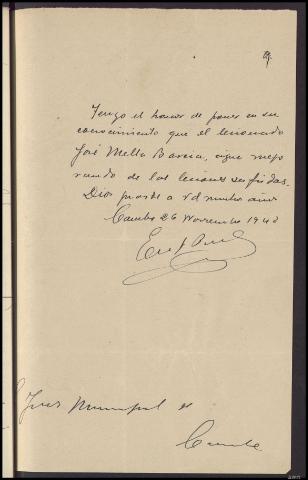 Tengo el honor de poner en su
conocimiento que el lesionado
José Mella Barcia, sigue mejo
rando de las lesiones sufridas.
Dios guarde a Vd muchos años
Cambre 26 Noviembre 1940
Juez Municipal de
Cambre